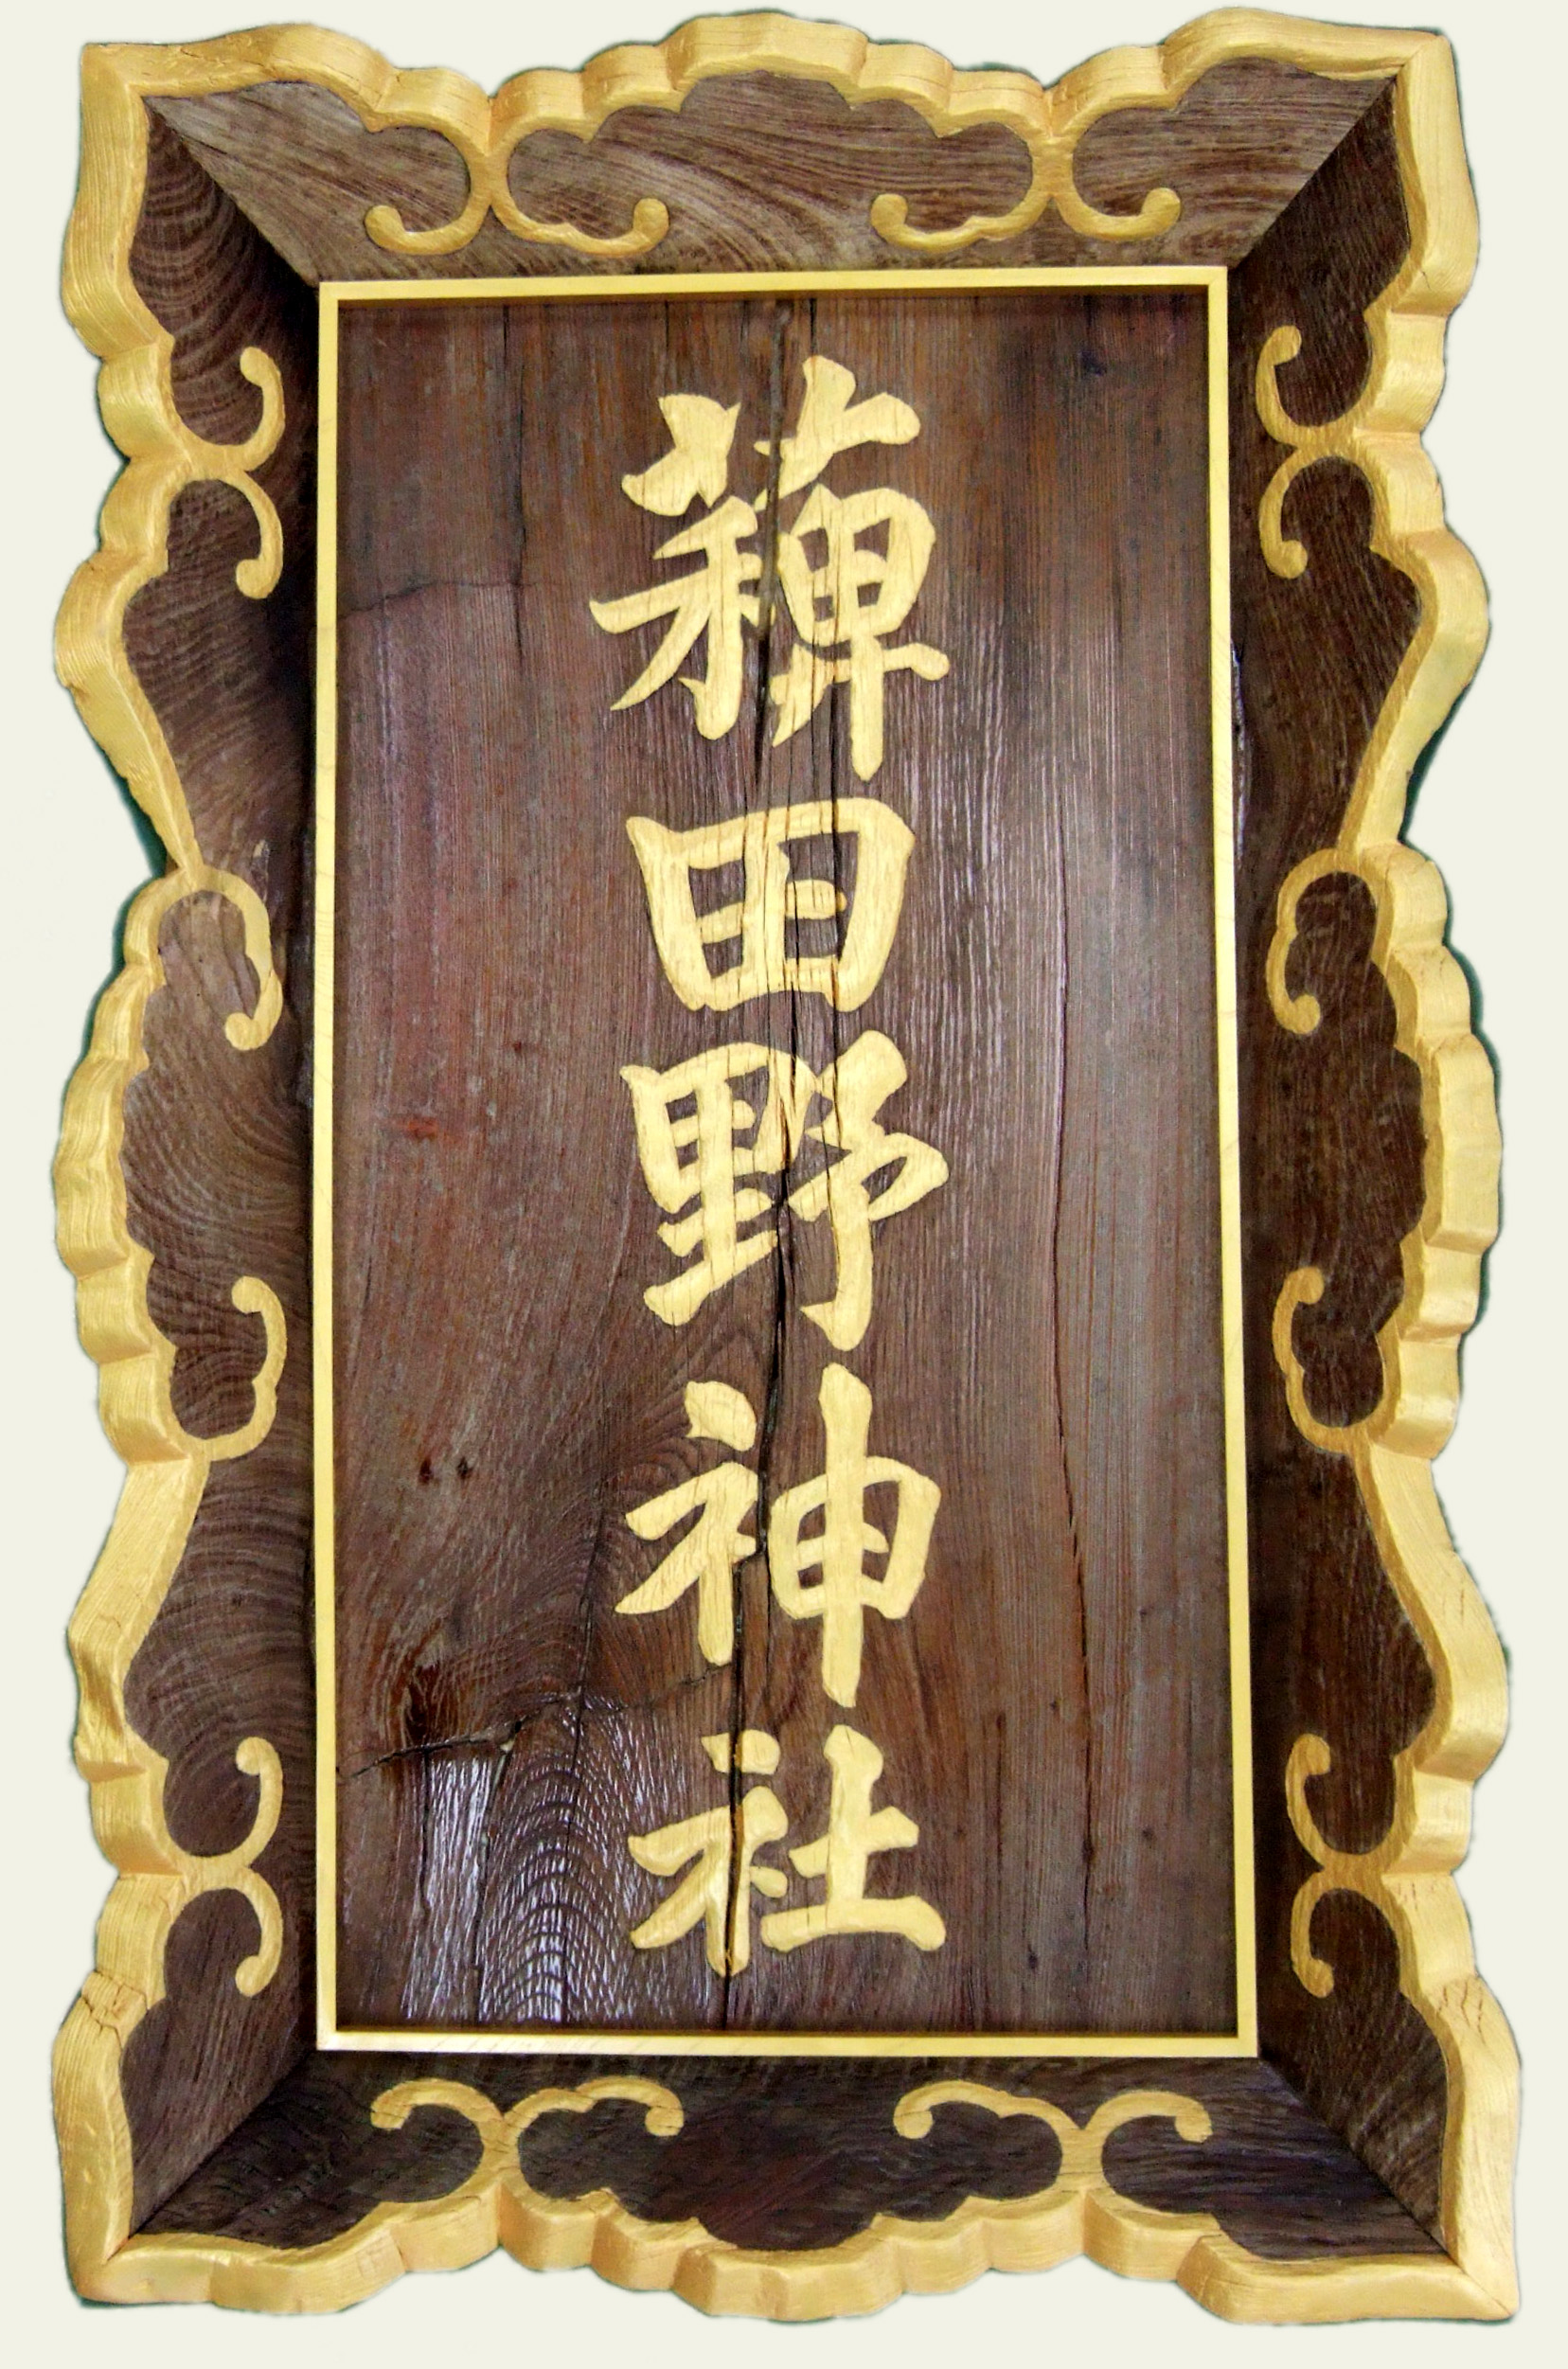 薭田野神社